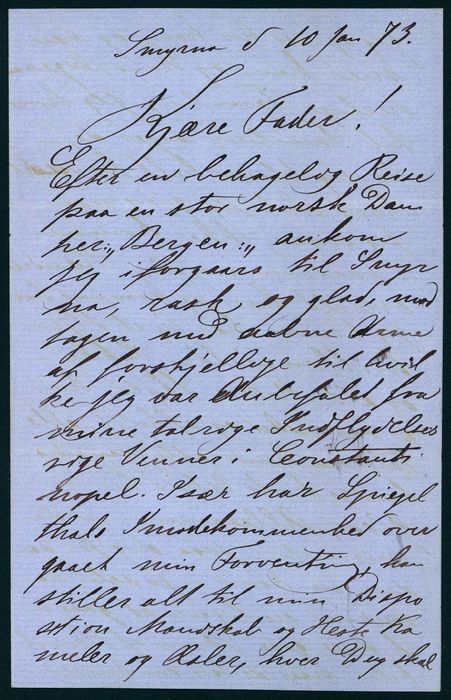 Smyrna d 10 Jan 73.
Kjære Fader!
Efter en behagelig Reise
paa en stor norsk Dam
per „Bergen„ ankom
jeg iforgaars til Smyr
na, rask og glad, mod
tagen med aabne Arme
af forskjellige til hvil
ke jeg var Anbefalet fra
mine talrige Indflydelses
rige Venner i Constanti
nopel. Især har Spiegel
thals Imødekommenhed over
gaaet min Forventing, han
stiller alt til min Dispo
sition Mandskab og Heste Ka
meler og Æsler, hver Dag skal